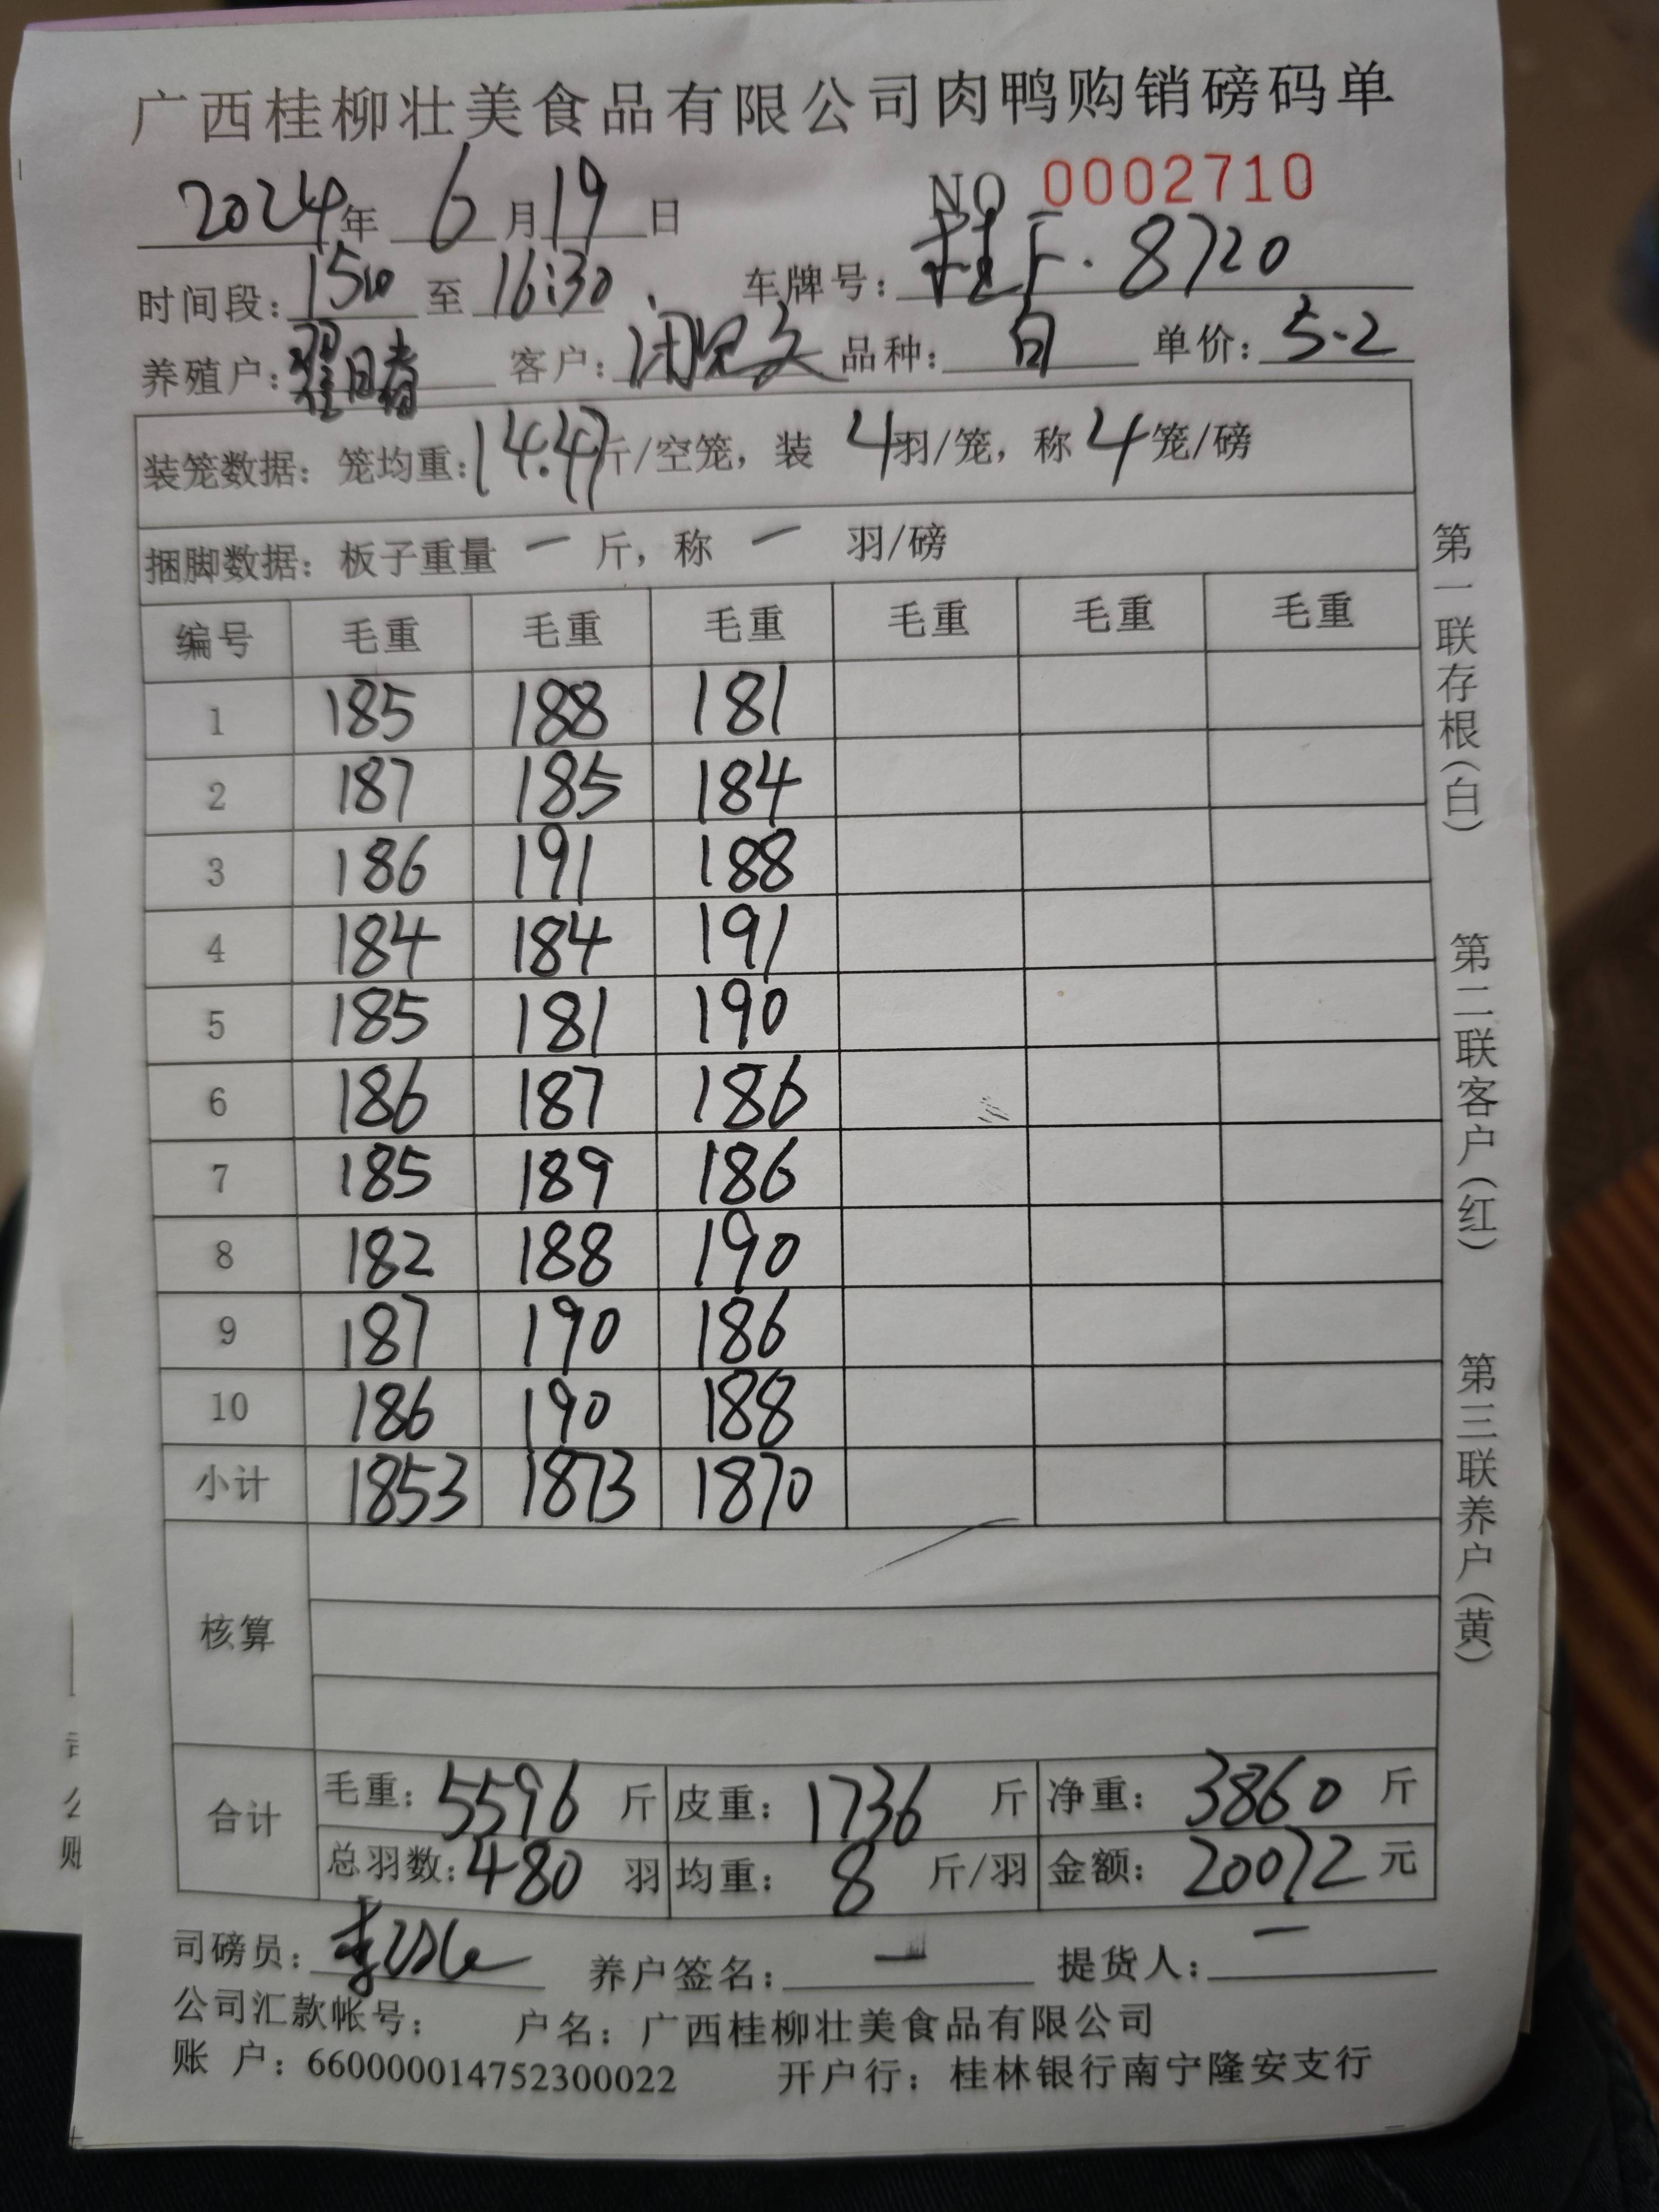 广西桂柳壮美食品有限公司肉鸭购销磅码单
2024年 6 月 19 日 NO 0002710
时间段: 1510 至 16:30 车牌号: 桂F·8720
养殖户: 客户: 品种: 白 单价: 5.2
装笼数据: 笼均重: 14.47 斤/空笼, 装 4 羽/笼, 称 4 笼/磅
捆脚数据: 板子重量 一 斤, 称 一 羽/磅
编号 毛重 毛重 毛重 毛重 毛重 毛重
1 185 188 181
2 187 185 184
3 186 191 188
4 184 184 191
5 185 181 190
6 186 187 186
7 185 189 186
8 182 188 190
9 187 190 186
10 186 190 188
小计 1853 1873 1870
核算
合计 毛重: 5596 斤 皮重: 1736 斤 净重: 3860 斤
总羽数: 480 羽 均重: 8 斤/羽 金额: 20072 元
司磅员: 养户签名: 一 提货人: 一
公司汇款帐号: 户名: 广西桂柳壮美食品有限公司
账 户: 660000014752300022 开户行: 桂林银行南宁隆安支行
第一联存根(白) 第二联客户(红) 第三联养户(黄)